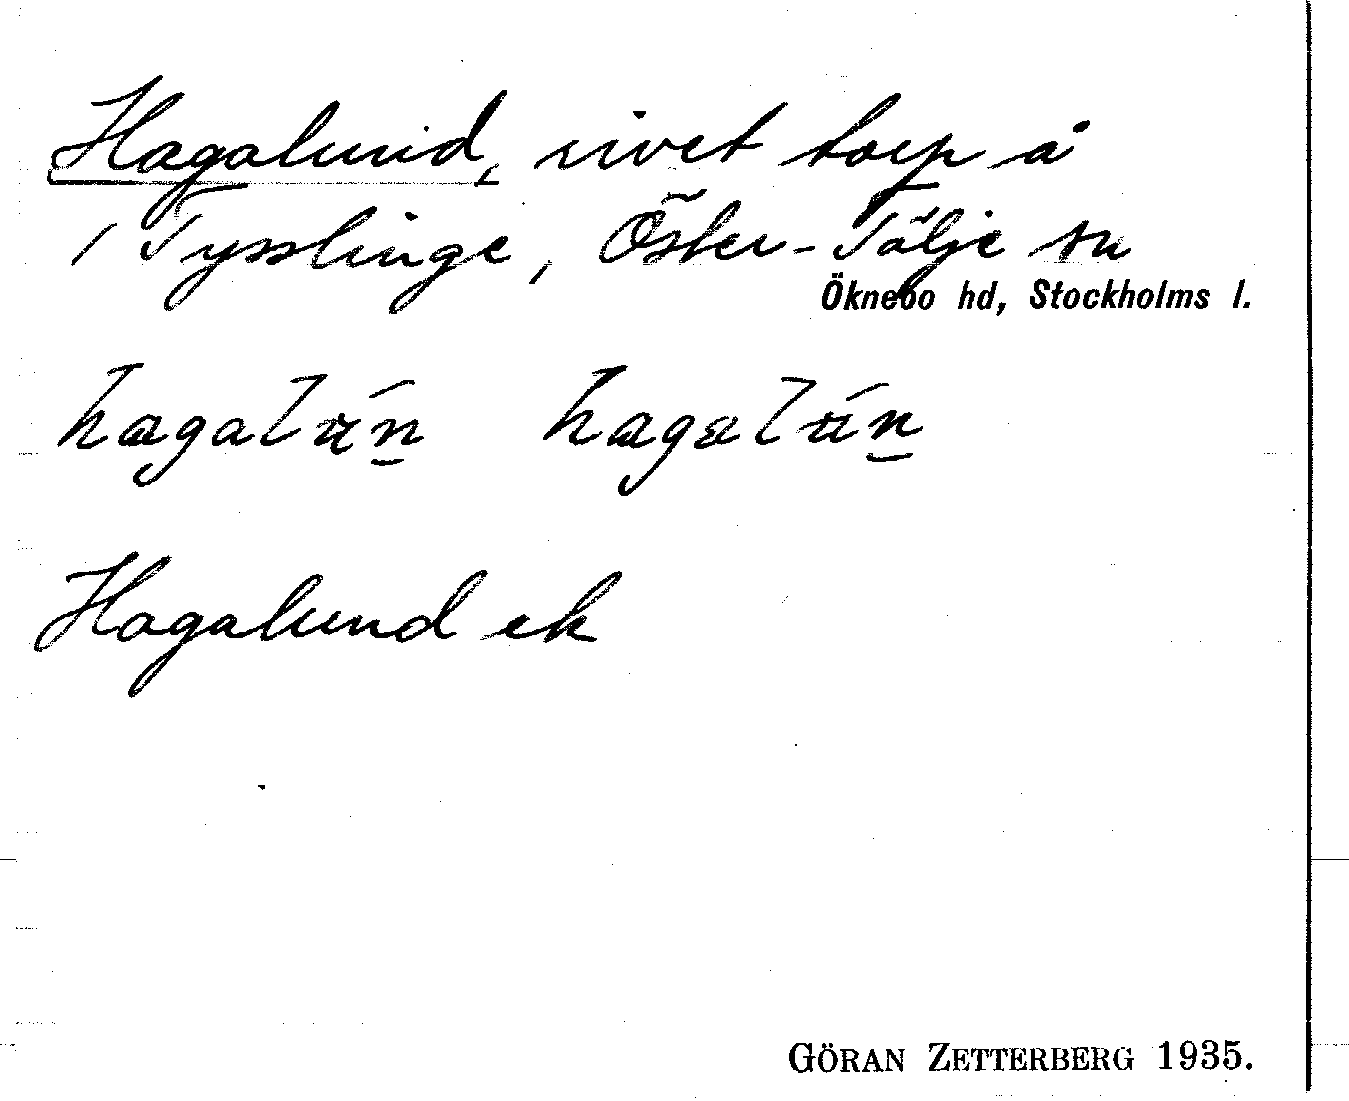 Hagalund, rivet torp å
1 Tysslinge, Öster-Tälje sn
Öknebo hd, Stockholms l.
hagalún hagalún
Hagalund ek
GÖRAN ZETTERBERG 1935.